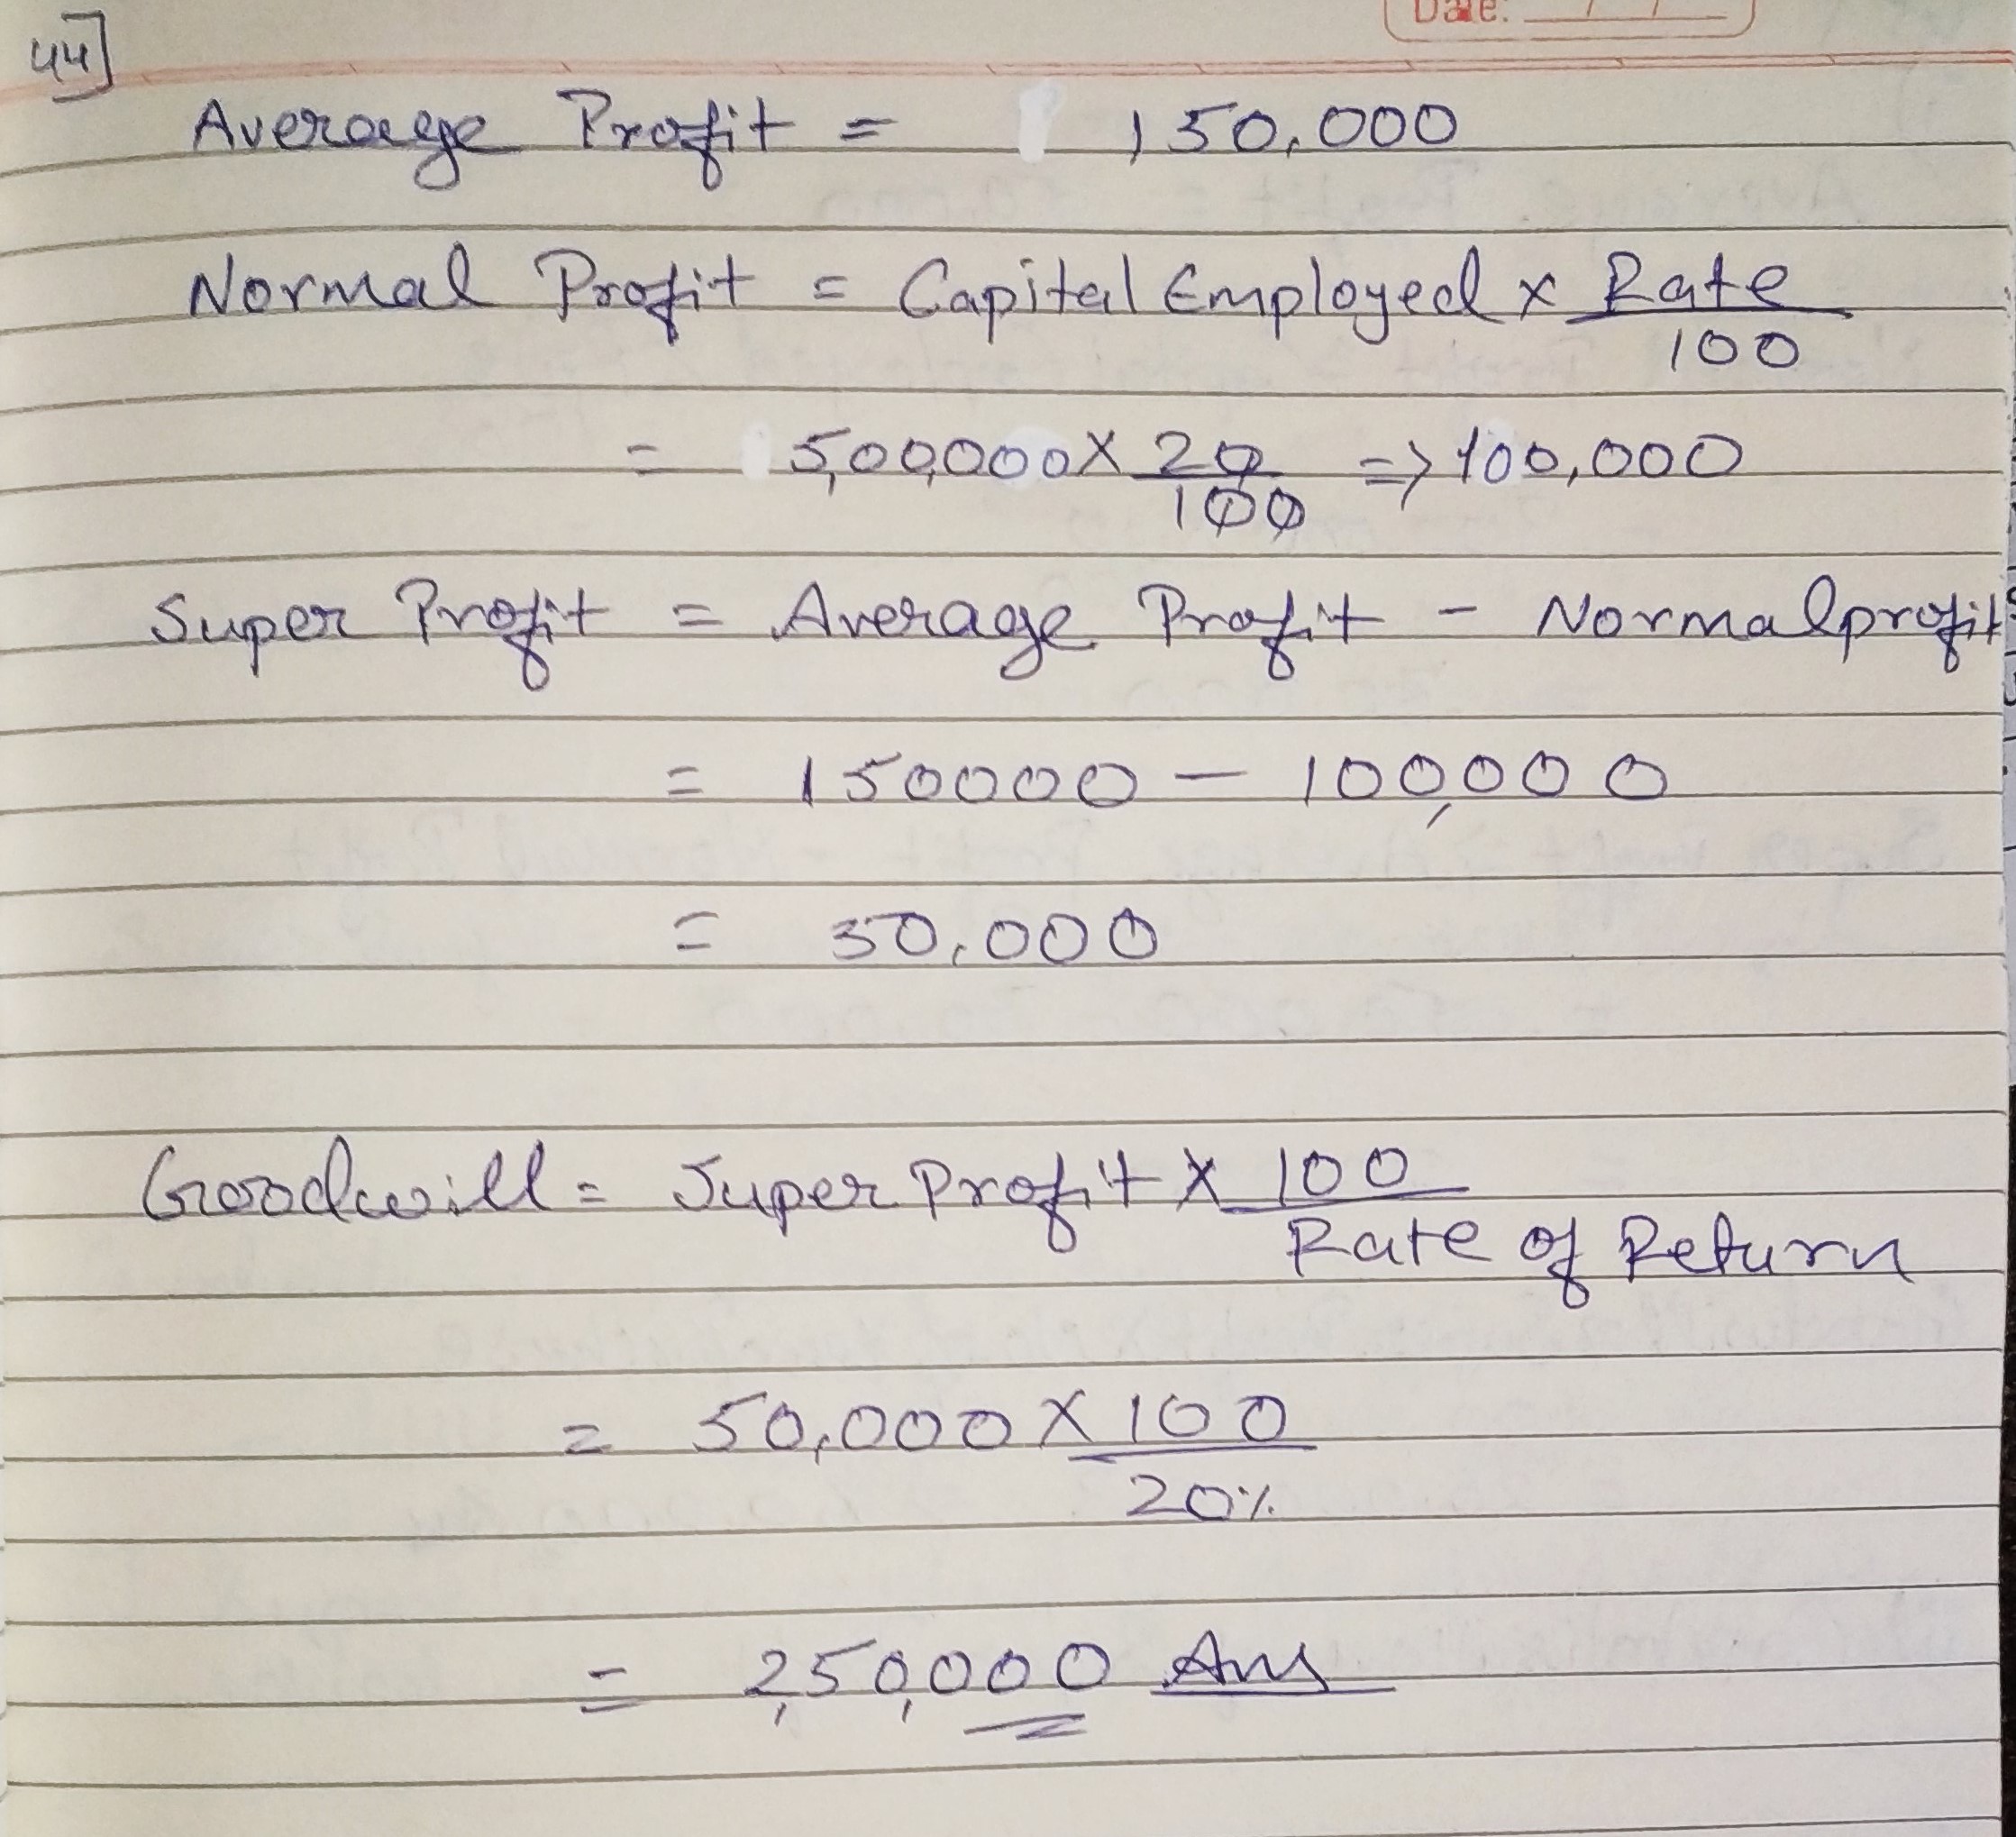 Date: / /
44]
Average Profit = 150,000
Normal Profit = Capital Employed x Rate
100
= 5,00,000 X 20
100 => 100,000
Super Profit = Average Profit - Normal profit
= 150000 - 100,000
= 50,000
Goodwill = Super Profit X 100
Rate of Return
= 50,000 X 100
20%
= 2,50,000 Ans